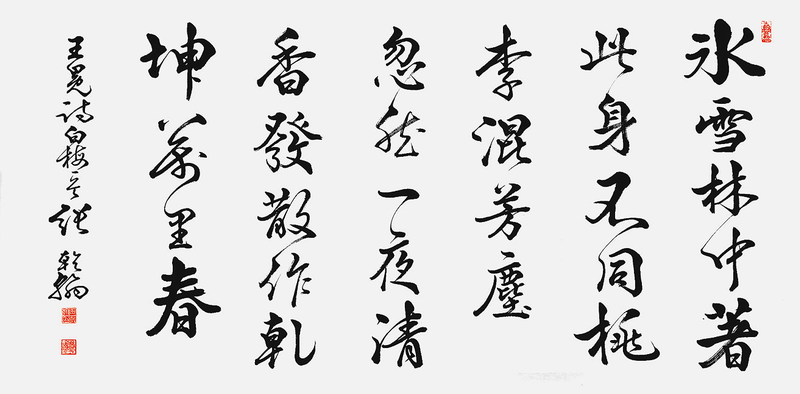 氷雪林中著
此身不同桃
李混芳塵
忽然一夜清
香發散作乾
坤萬里春
王冕詩白梅